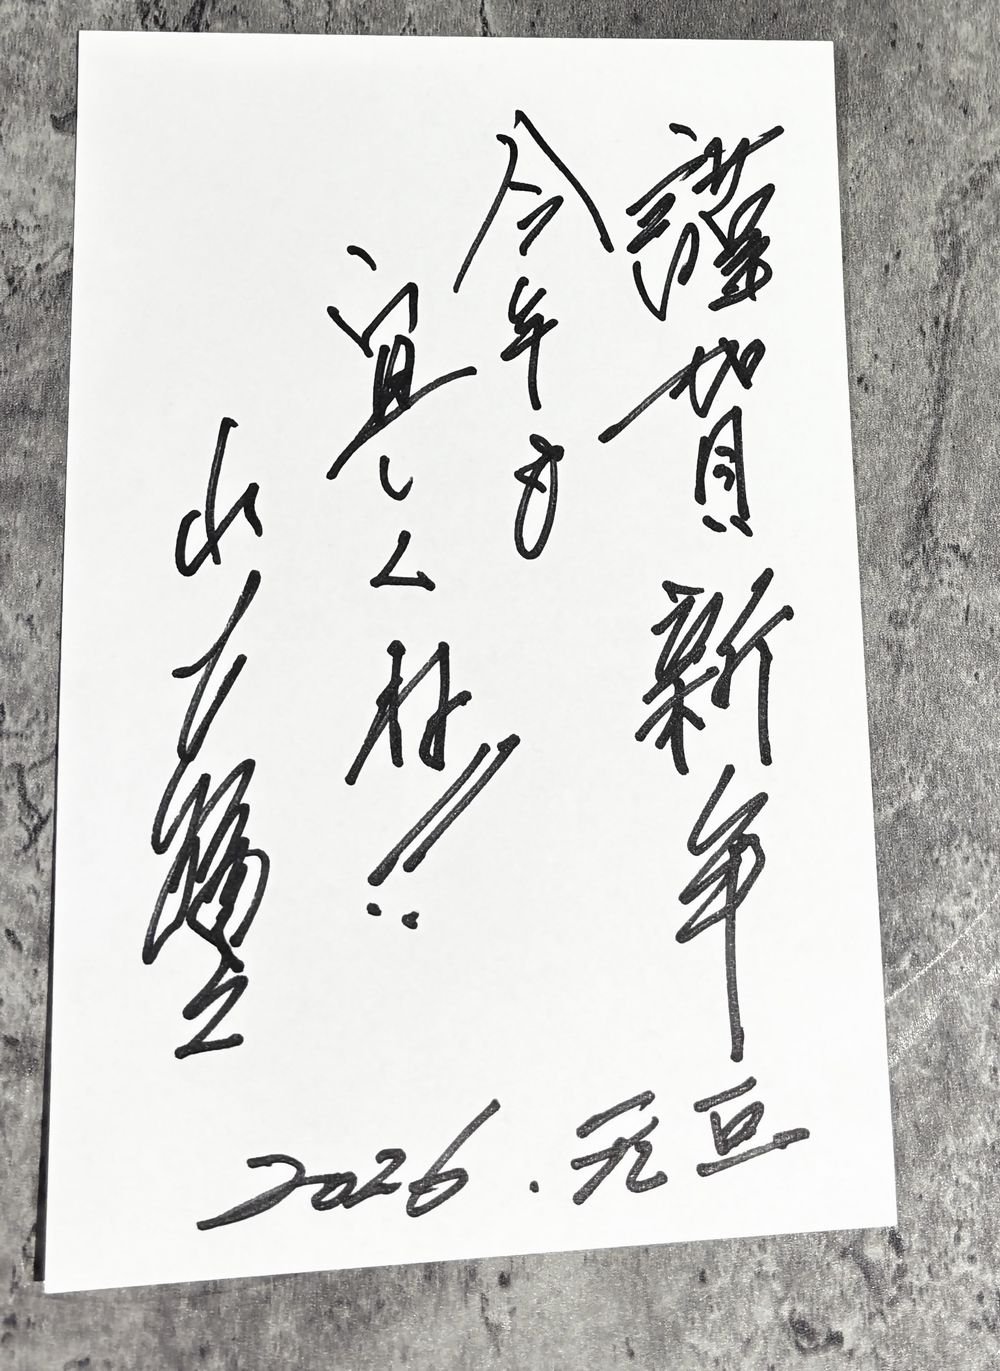 謹賀新年
今年も
宜しく
2026.元旦